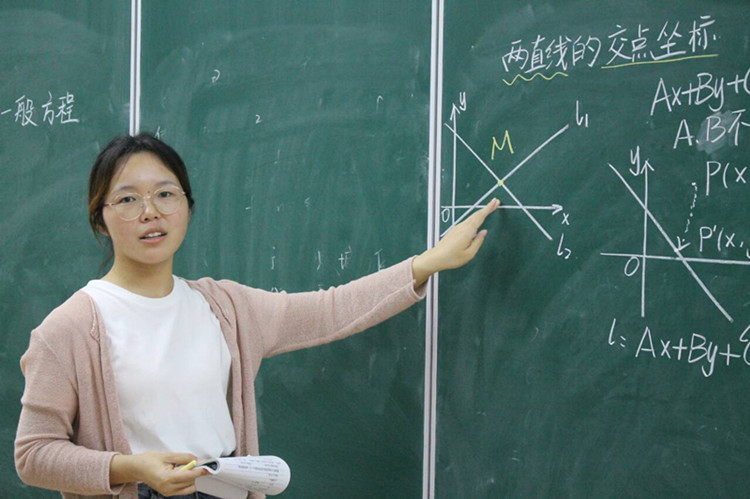 一般方程
两直线的交点坐标
Ax+By+
A.B不
y
M
l₁
O
x
l₂
P(x
y
P'(x,
O
l: Ax+By+